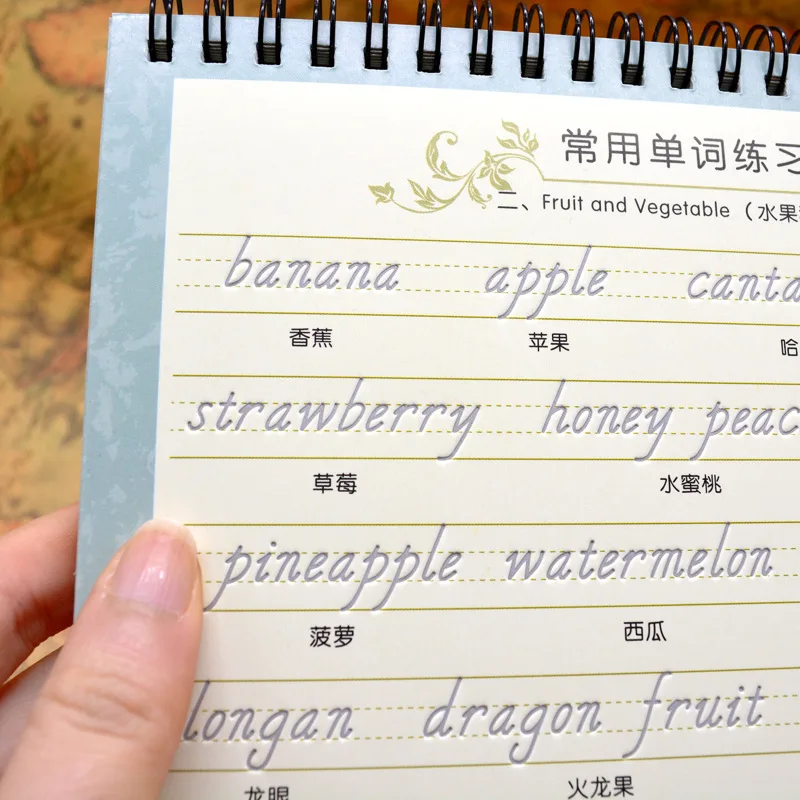 常用单词练习
二、Fruit and Vegetable（水果
banana apple canta
香蕉 苹果 哈
strawberry honey peac
草莓 水蜜桃
pineapple watermelon
菠萝 西瓜
longan dragon fruit
龙眼 火龙果